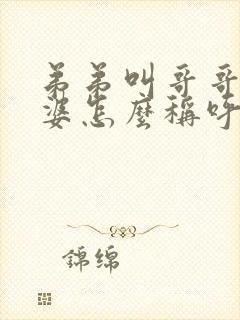 弟弟叫哥哥
婆怎麼稱呼
錦绵